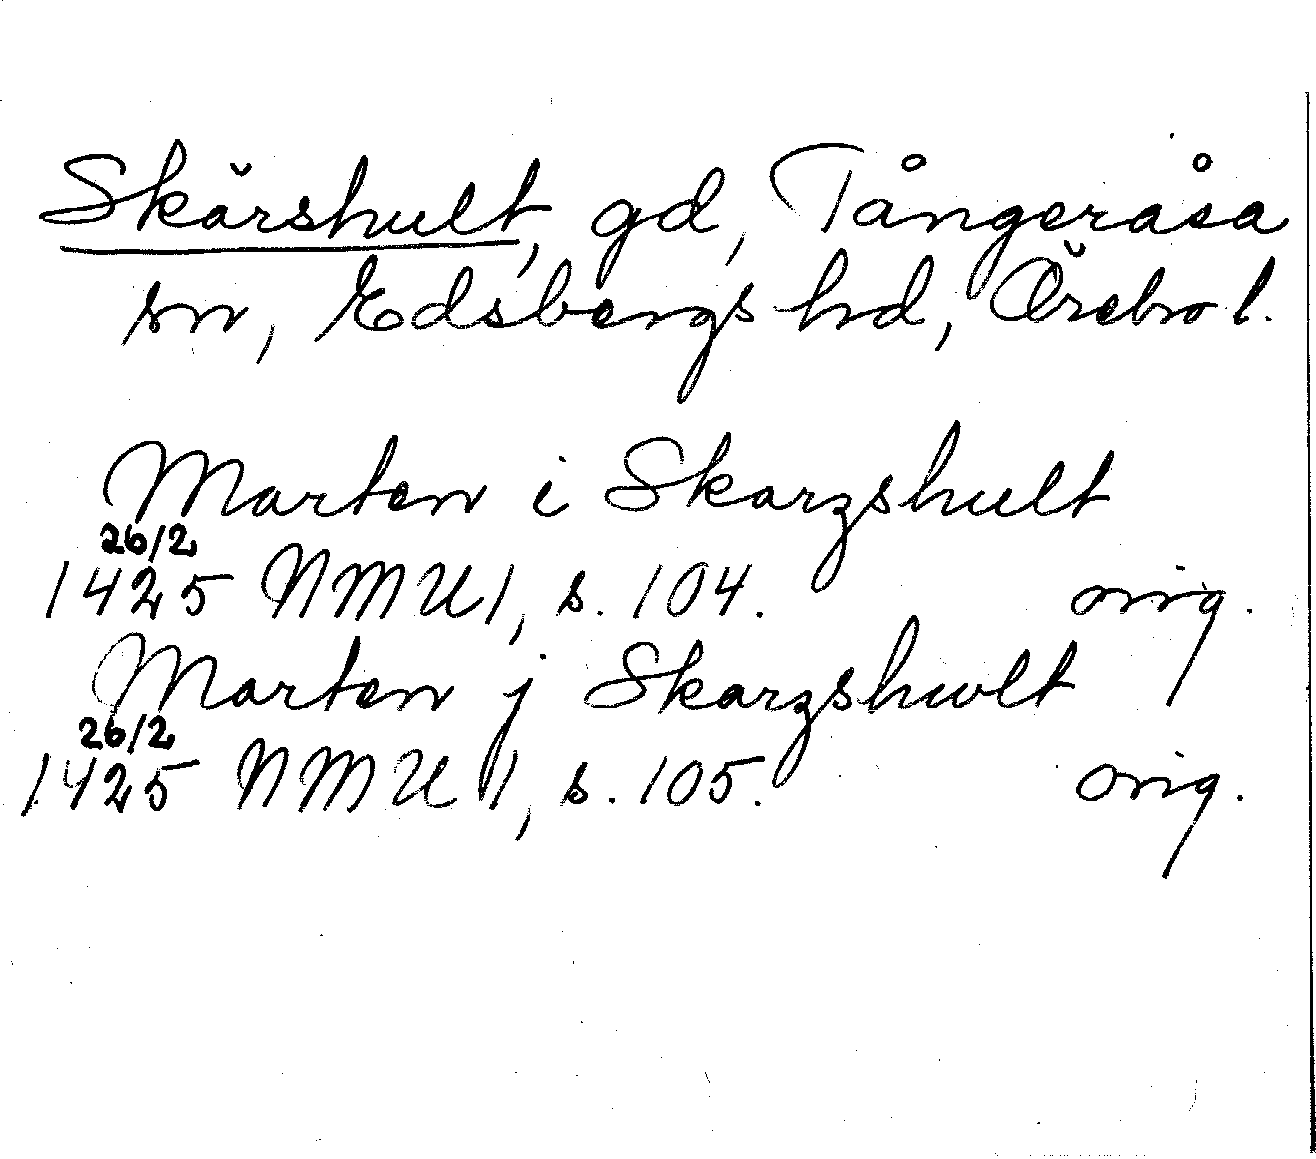 Skärshult, gd, Tångeråsa
sn, Edsbergs hd, Örebro l.
Marten i Skarzshult
26/2
1425 NMU 1, s. 104. orig.
Marten j Skarzshwlt
26/2
1425 NMU 1, s. 105. orig.